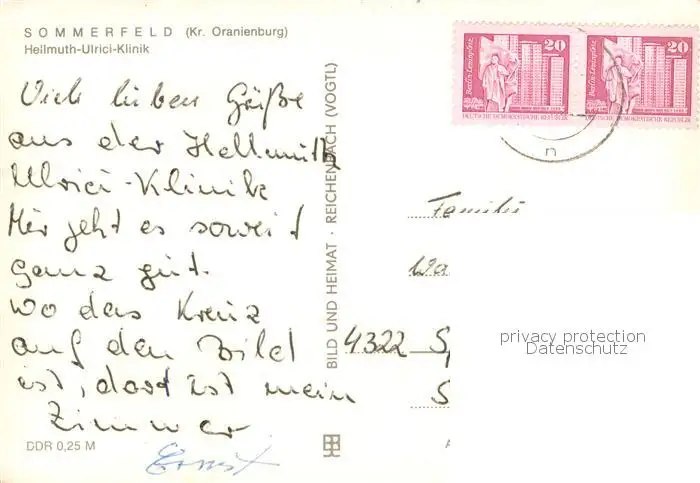 SOMMERFELD (Kr. Oranienburg)
Hellmuth-Ulrici-Klinik
Viele lieben Grüße
aus der Hellmuth
Ulrici-Klinik
Mir geht es soweit
ganz gut.
Wo das Kreuz
auf den Bild
ist, dort ist mein
Zimmer
Ernst
DDR 0,25 M
BILD UND HEIMAT · REICHENBACH (VOGTL)
Berlin-Leninplatz
20
DEUTSCHE DEMOKRATISCHE REPUBLIK
Berlin-Leninplatz
20
DEUTSCHE DEMOKRATISCHE REPUBLIK
n
Familie
Wa
4322 S
S
privacy protection
Datenschutz